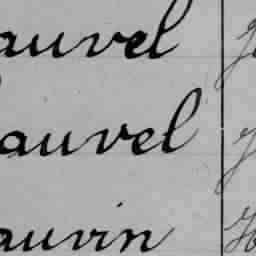 auvel
auvel
auvin